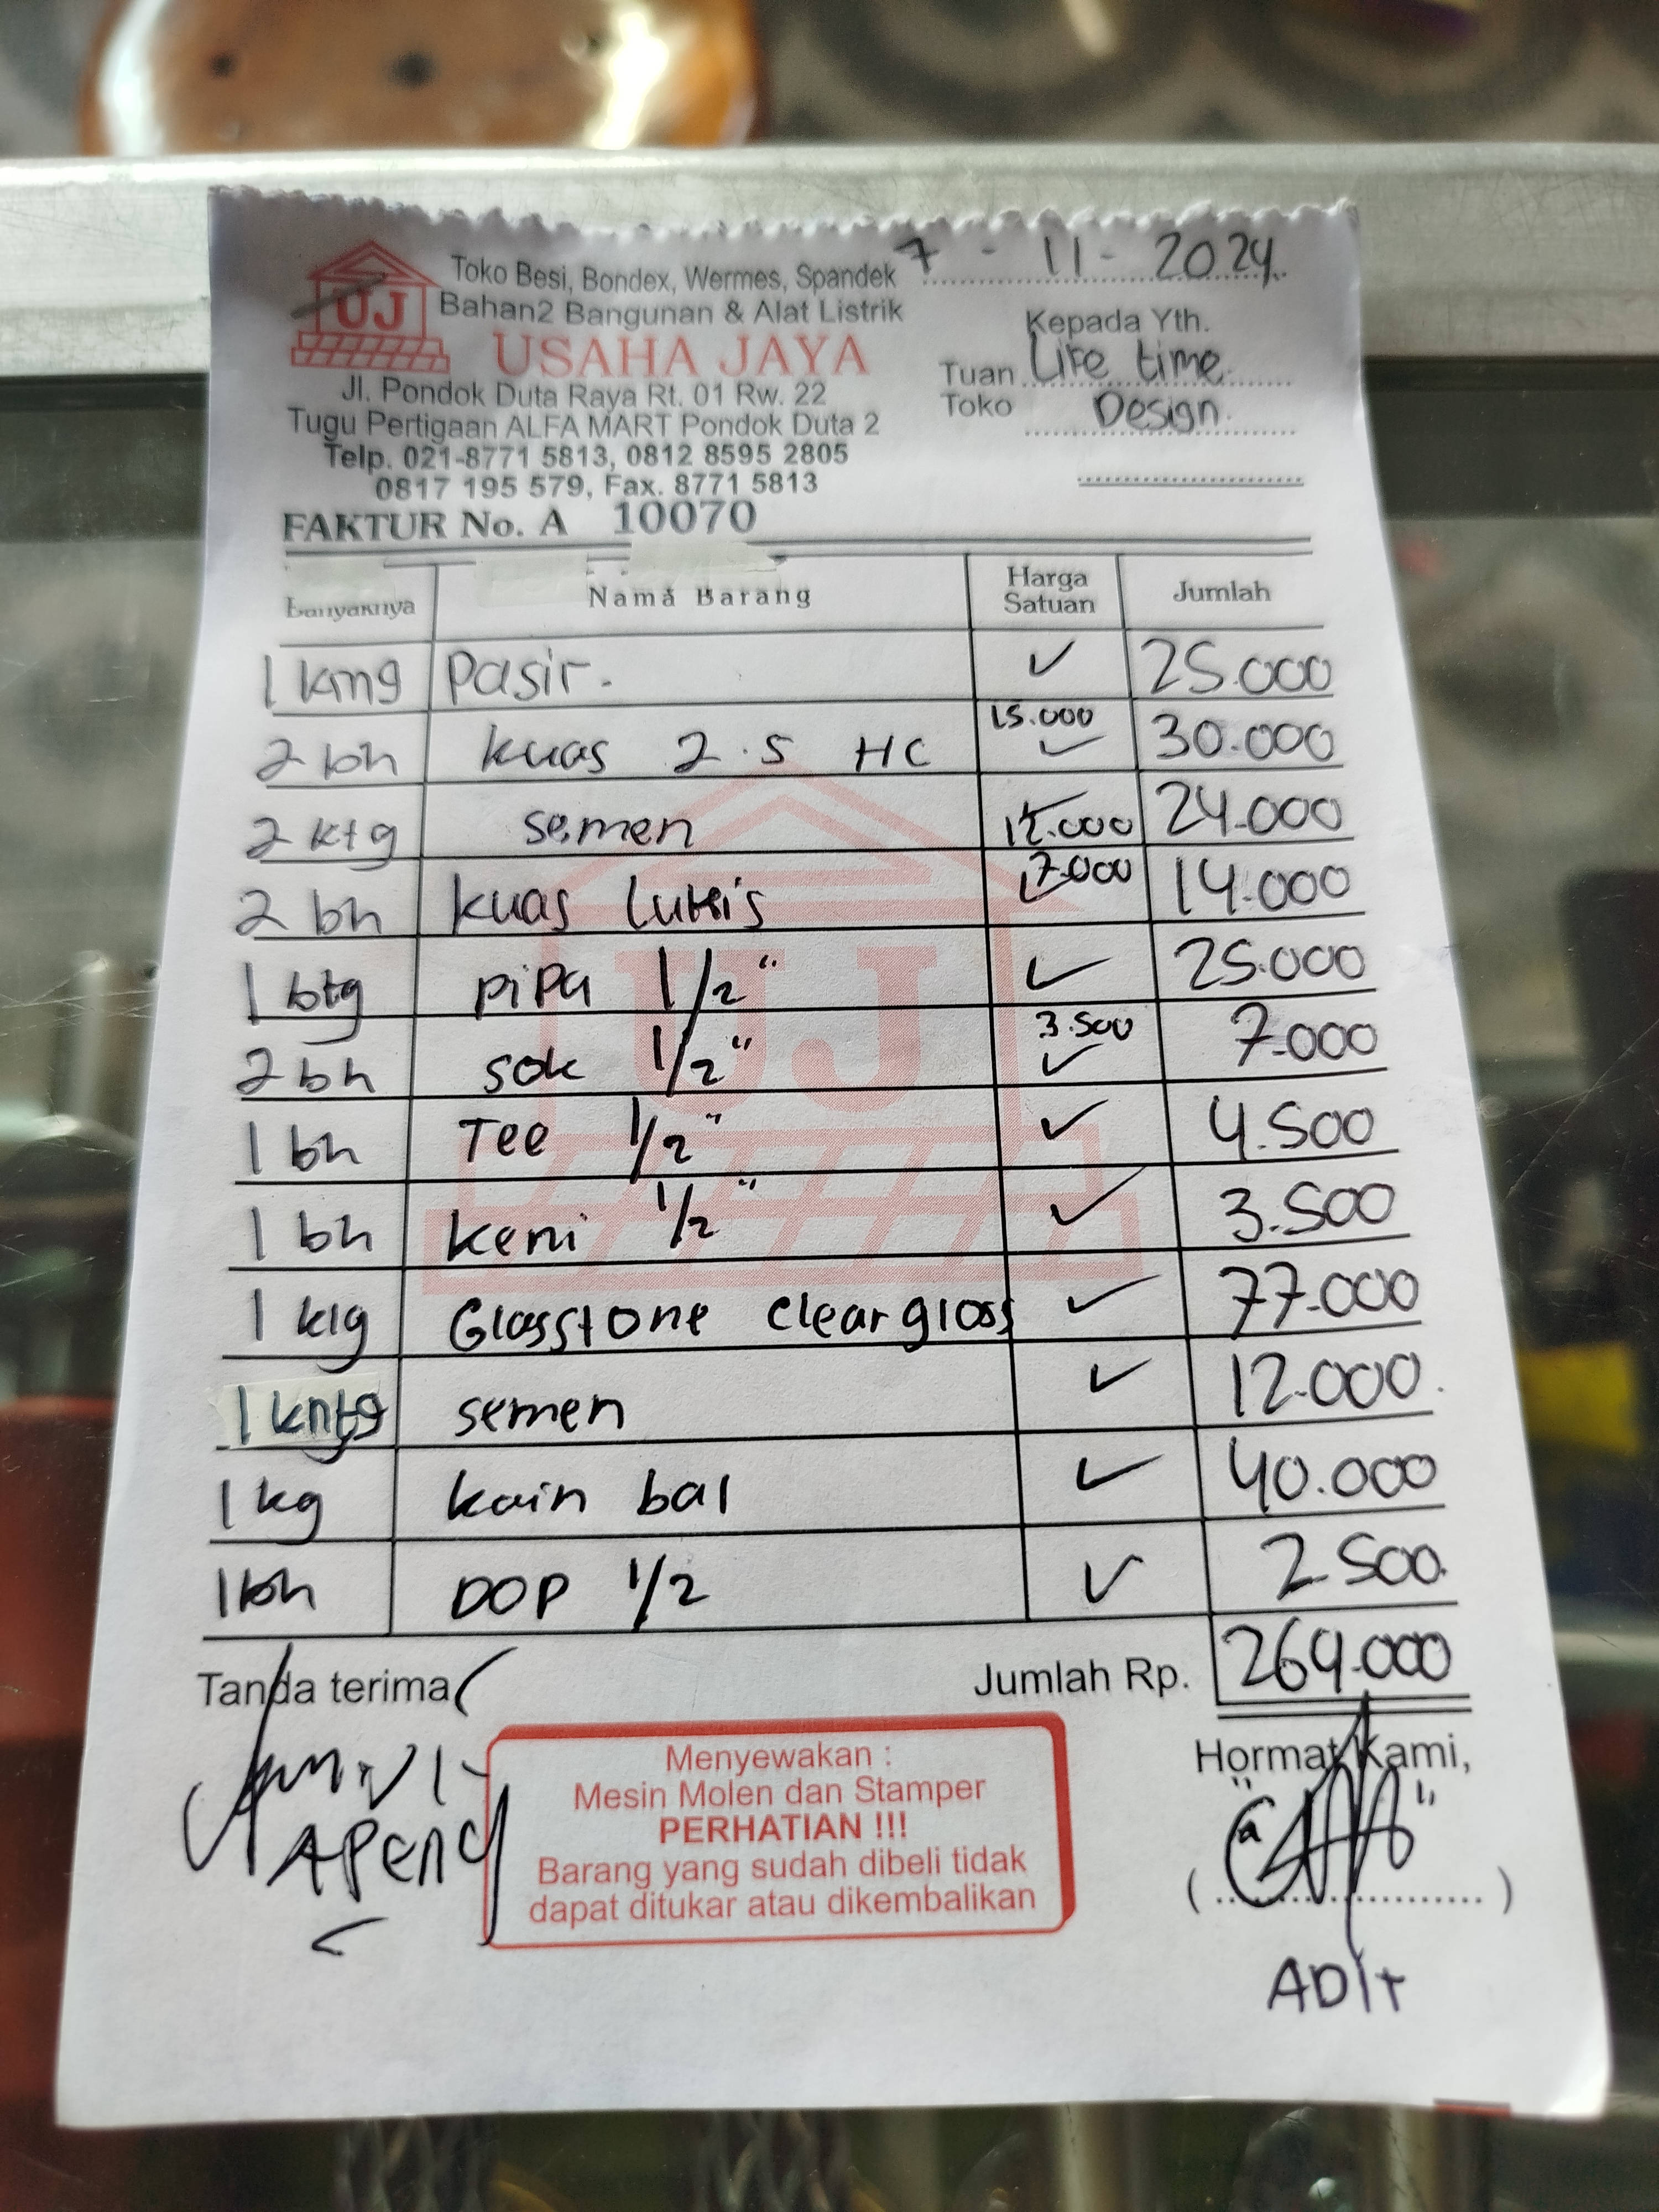 7 - 11 - 2024
Toko Besi, Bondex, Wermes, Spandek
Bahan2 Bangunan & Alat Listrik
UJ
USAHA JAYA
Jl. Pondok Duta Raya Rt. 01 Rw. 22
Tugu Pertigaan ALFA MART Pondok Duta 2
Telp. 021-8771 5813, 0812 8595 2805
0817 195 579, Fax. 8771 5813
Kepada Yth.
Tuan Life time
Toko Design.
FAKTUR No. A 10070
Banyaknya Nama Barang Harga Satuan Jumlah
1 kmg pasir. ✓ 25.000
2 bh kuas 2.5 HC 15.000 ✓ 30.000
2 ktg semen 12.000 24.000
2 bh kuas lukis 7.000 14.000
1 btg pipa 1/2" ✓ 25.000
2 bh sok 1/2" 3.500 ✓ 7.000
1 bh Tee 1/2" ✓ 4.500
1 bh keni 1/2" ✓ 3.500
1 klg Glasstone clear gloss ✓ 77.000
1 kntg semen ✓ 12.000.
1 kg kain bal ✓ 40.000
1 bh DOP 1/2 ✓ 2.500.
Jumlah Rp. 264.000
Tanda terima
APeng
Menyewakan :
Mesin Molen dan Stamper
PERHATIAN !!!
Barang yang sudah dibeli tidak
dapat ditukar atau dikembalikan
Hormat Kami,
ADIT